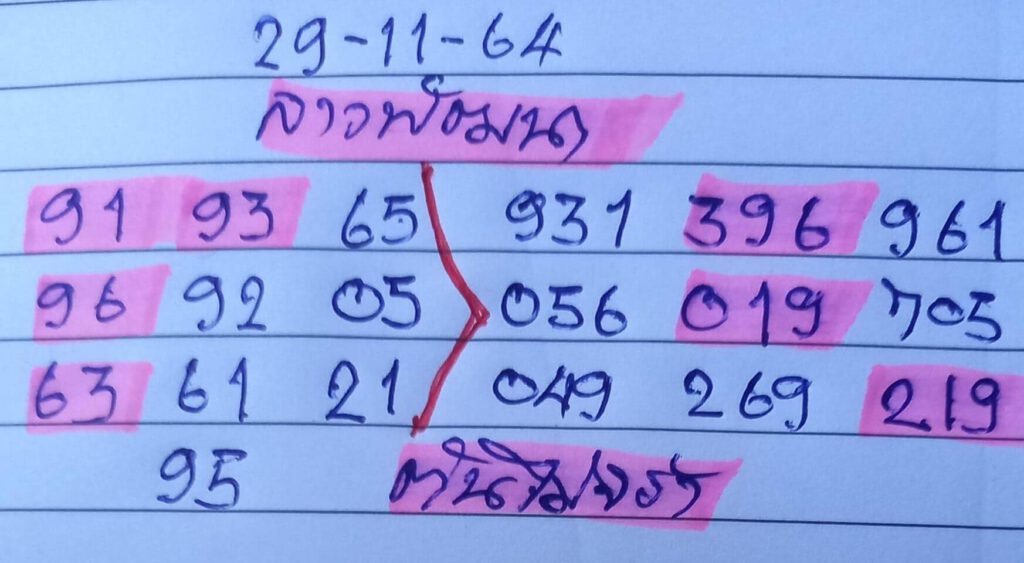 29-11-64
ลาวพัฒนา
91 93 65 931 396 961
96 92 05 056 019 705
63 61 21 049 269 219
95